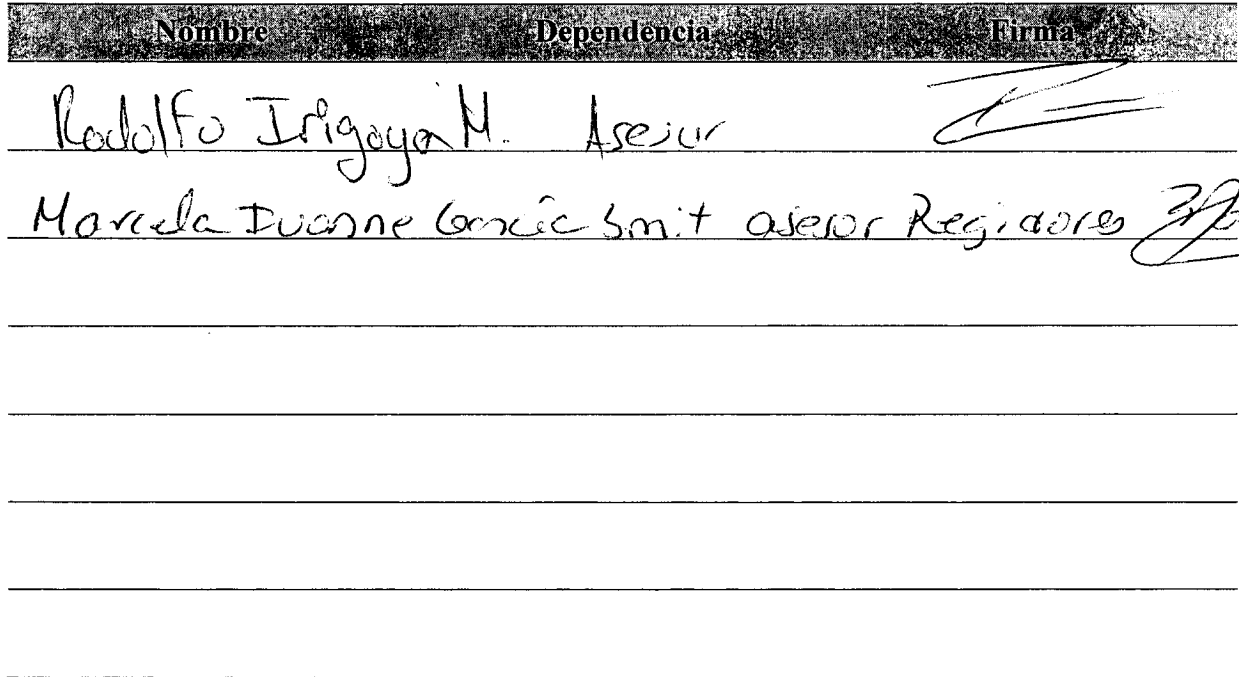 Nombre Dependencia Firma
Rodolfo Irigoyen M. Asesor
Marcela Ivonne García Smit asesor Regidores